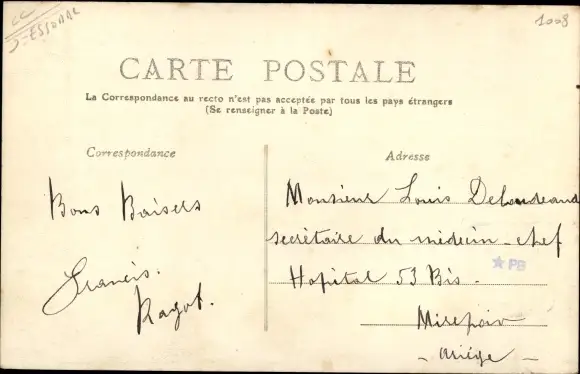 CC
1008
CARTE POSTALE
La Correspondance au recto n'est pas acceptée par tous les pays étrangers
(Se renseigner à la Poste)
Correspondance
Bons Baisers
Francis.
Ragot.
Adresse
Monsieur Louis
secrétaire du médecin-chef
Hopital 53 Bis.
PB
Mirepoix
- Ariège -